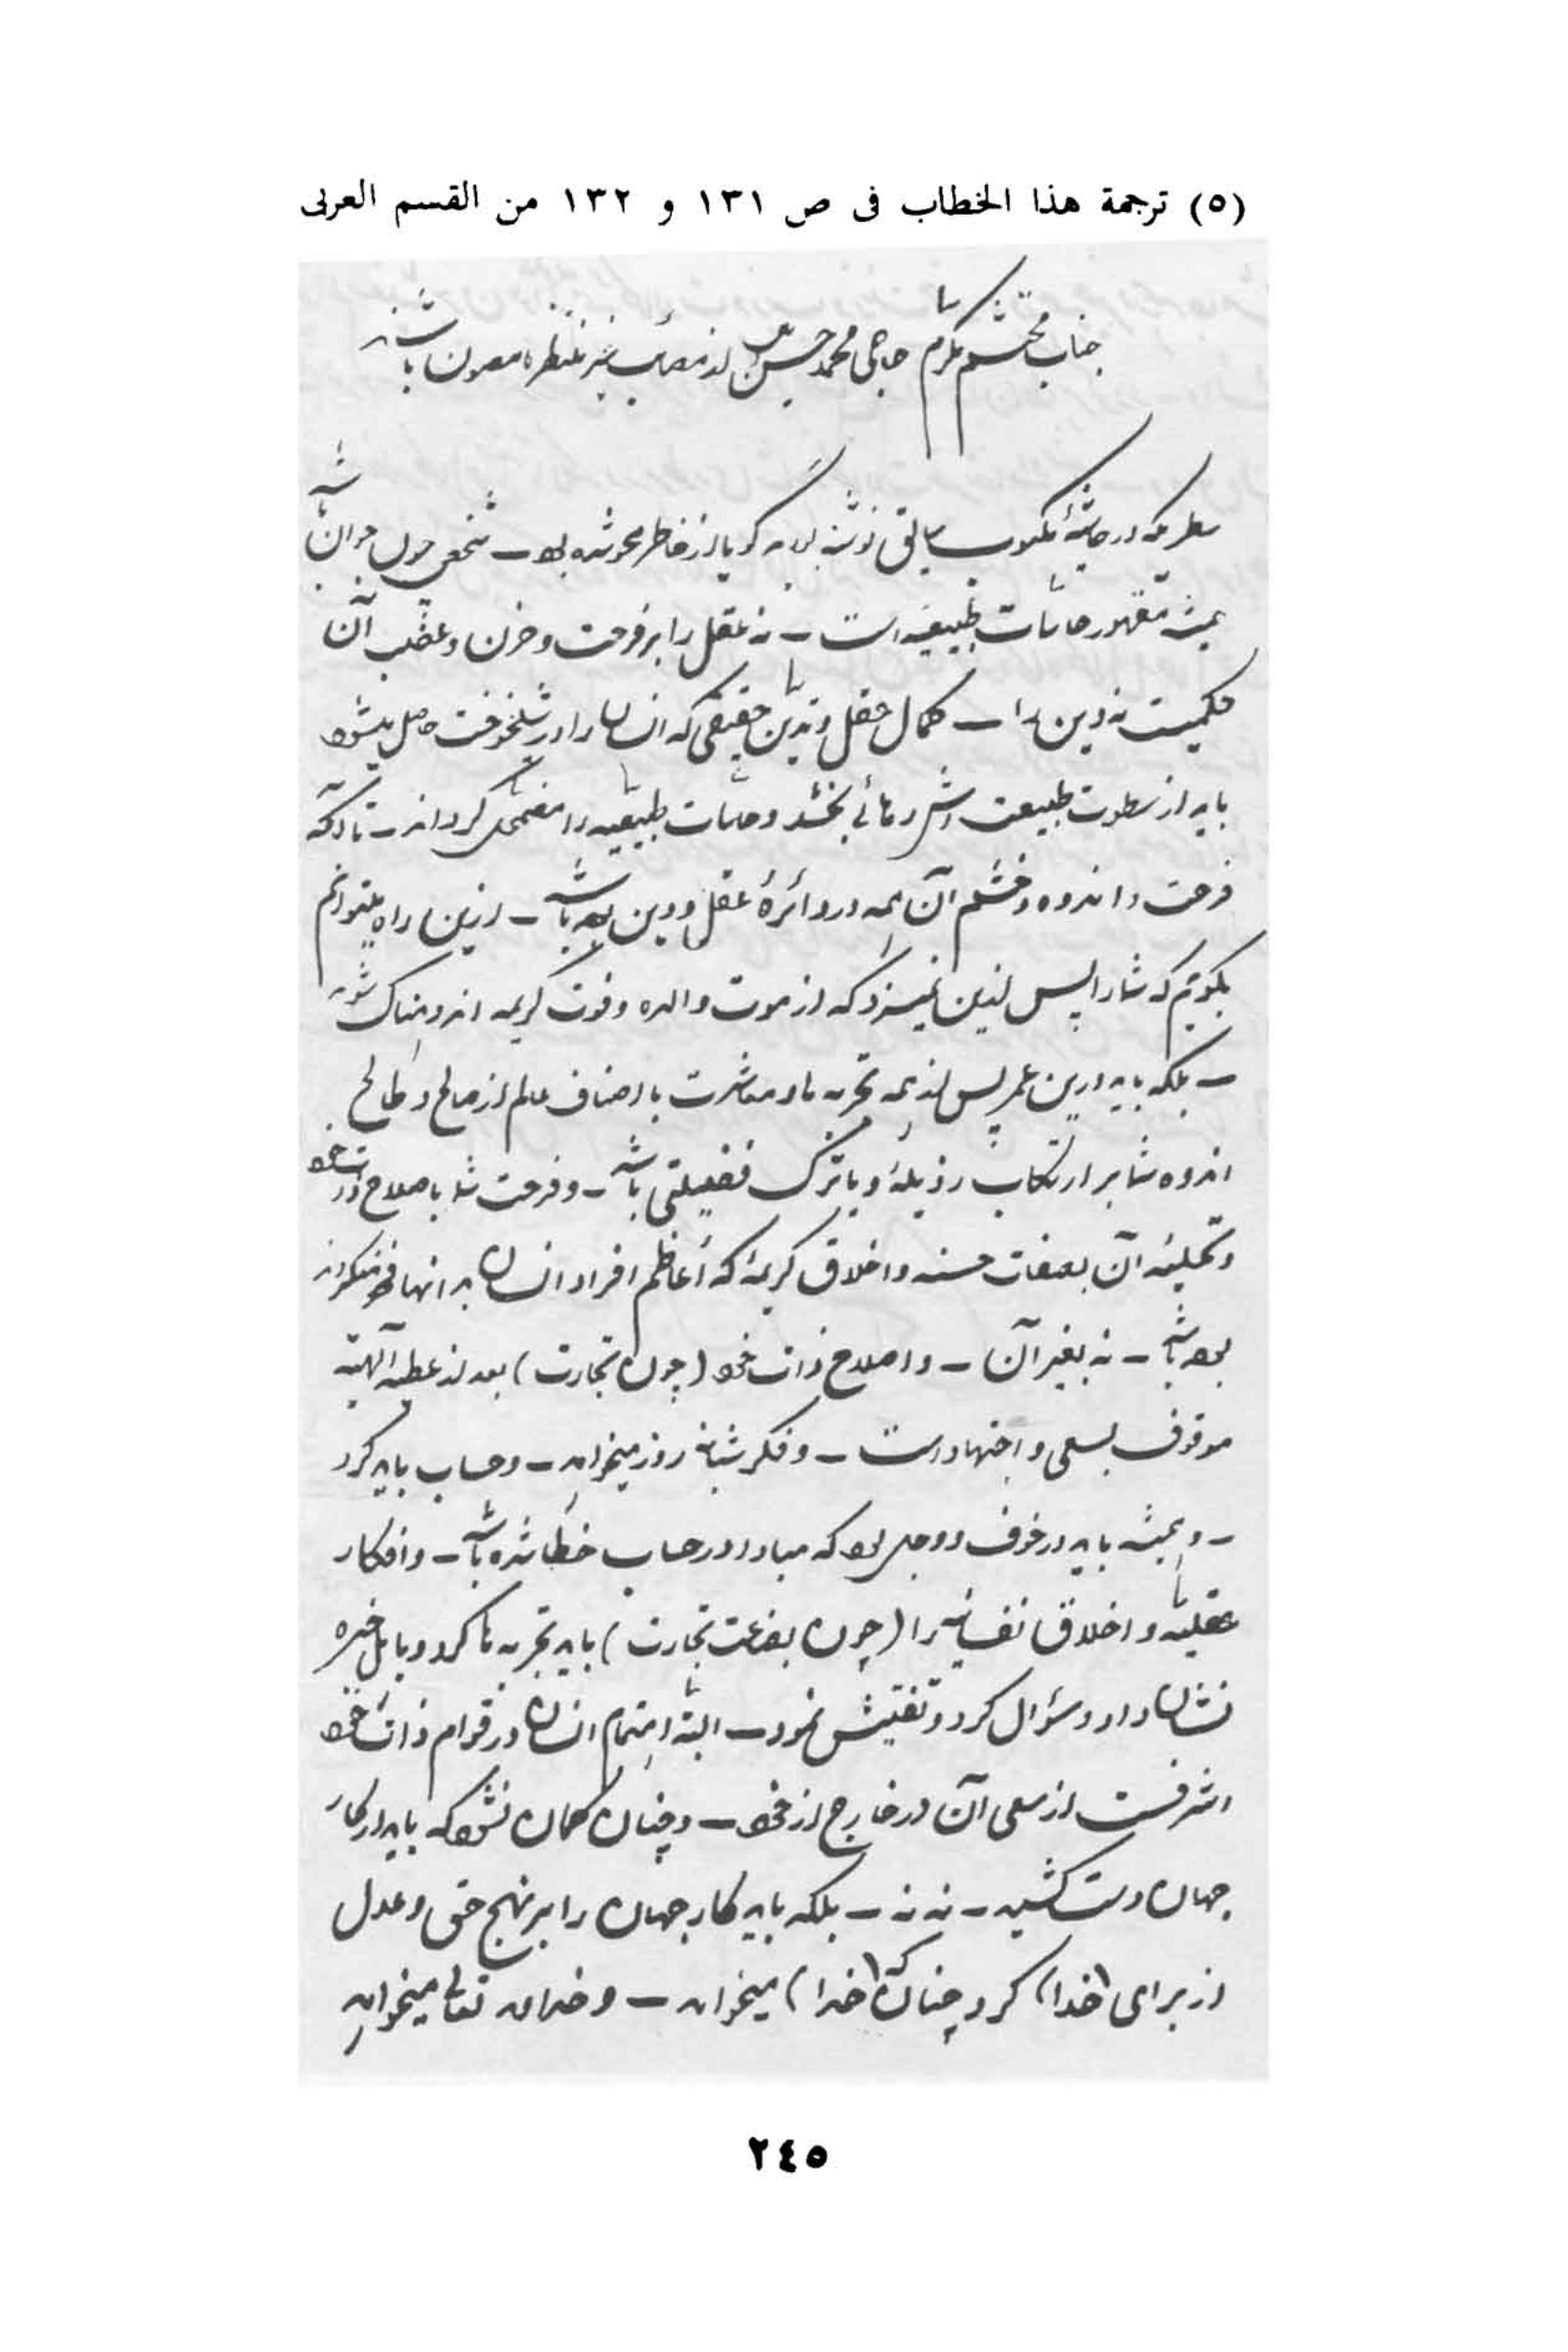 (٥) ترجمة هذا الخطاب فى ص ١٣١ و ١٣٢ من القسم العربى
جناب محتشم مکرم حاجی محمد حسن از مصائب غیر منتظره مصون باشند
سطریکه در حاشیهٔ مکتوب سابق نوشته گویا از خاطر محو شده بود – شخص چون جوان باشد
همیشه مقهور طبیعیه است – نه عقل را بر فرحت و حزن و غضب آن
حکمیست نه دین را – کمال عقل و تدین حقیقی که انسان را در شیخوخت حاصل میشود
باید از سطوت طبیعت اش رهائی بخشد و طبیعیه را مضمحل گرداند – تا آنکه
فرحت و اندوه و خشم آن همه در دائرهٔ عقل و دین بوده باشد – ازین راه میتوانم
بگویم که شما را پس ازین نمیسزد که از موت والده و فوت کریمه اندوهناک شوید
– بلکه باید درین عمر پس از همه تجربه ها و معاشرت با اصناف عالم از صالح و طالح
اندوه شما بر ارتکاب رذیلهٔ و یا ترک فضیلتی باشد – و فرحت شما باصلاح ذات خود
و تحلیهٔ آن بصفات حسنه و اخلاق کریمهٔ که اعاظم افراد انسان به آنها فخر میکردند
بوده باشد – نه بغیر آن – و اصلاح ذات خود (چون تجارت) بعد از عطیهٔ آلهیه
موقوف بسعی و اجتهاد است – و فکر شبانه روز میخواهد – و حساب باید کرد
– و همیشه باید در خوف و وجل بود که مبادا در حساب خطا شده باشد – و افکار
عقلیه و اخلاق نفسانیه را (چون بضاعت تجارت) باید تجربه ها کرد و باهل خبره
نشان داد و سؤال کرد و تفتیش نمود – البته اهتمام انسان در قوام ذات خود
اشرفست از سعی آن در خارج از خود – و چنان گمان نشود که باید از کار
جهان دست کشید – نه نه – بلکه باید کار جهان را بر نهج حق و عدل
از برای (خدا) کرد چنانکه (خدا) میخواهد – و خداوند تعالی میخواهد
٢٤٥